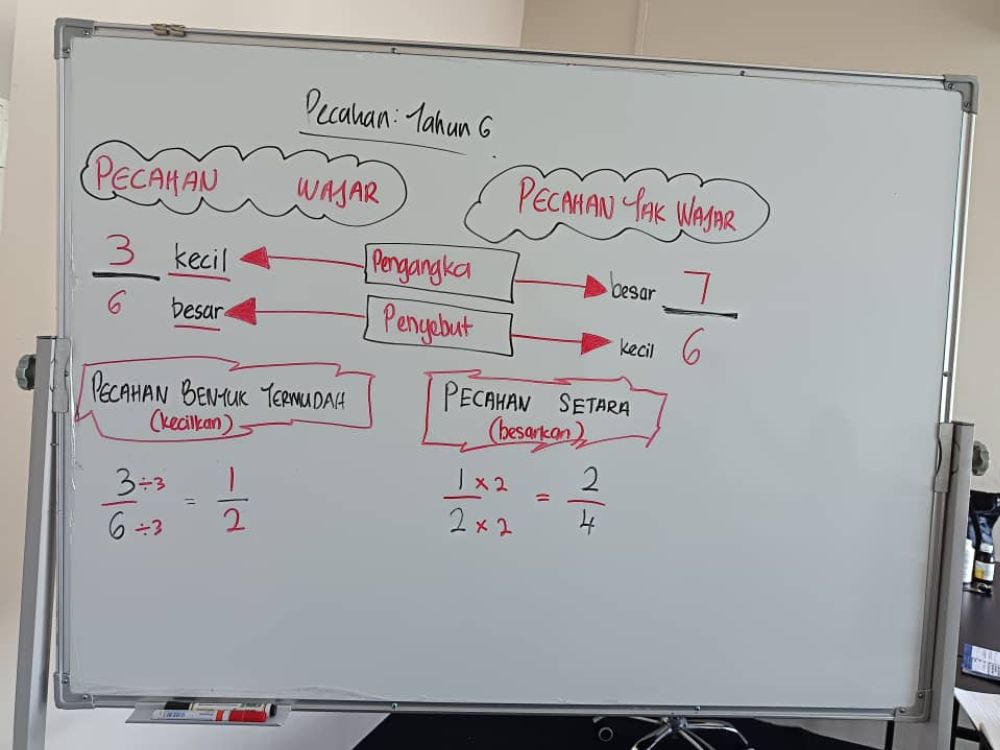 Pecahan: Tahun 6
PECAHAN WAJAR
PECAHAN TAK WAJAR
3 kecil
Pengangka
besar 7
6 besar
Penyebut
kecil 6
PECAHAN BENTUK TERMUDAH
(kecilkan)
PECAHAN SETARA
(besarkan)
3 ÷3 = 1
6 ÷3 2
1 × 2 = 2
2 × 2 4